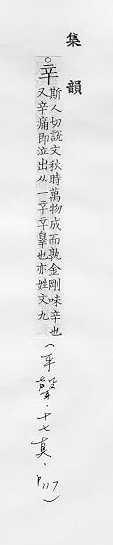 集韻
○辛
斯人切說文秋時萬物成而孰金剛味辛也
又辛痛即泣出从一䇂䇂辠也亦姓文九
(平聲·十七真·P117)